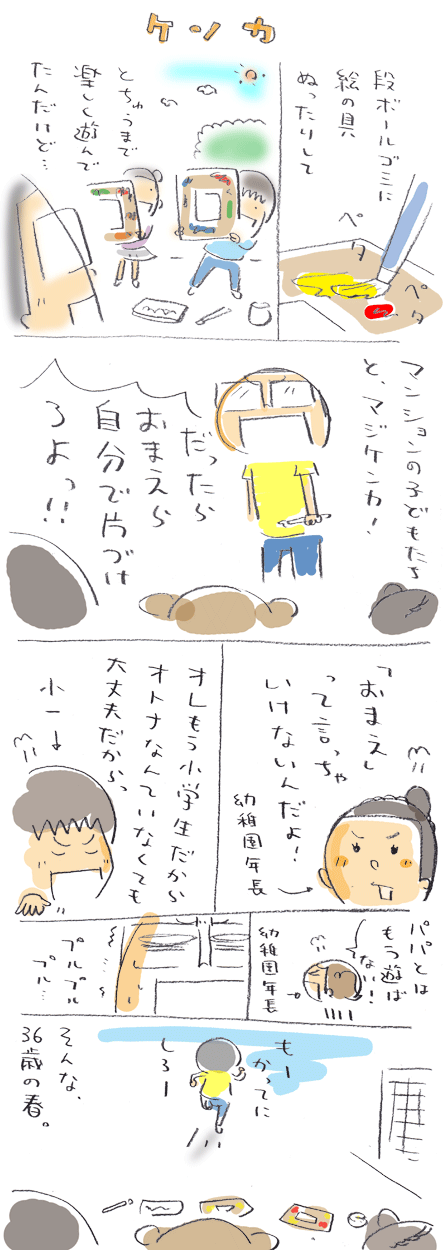 ケンカ
段ボールゴミに
絵の具
ぬったりして
ペタ
ペタ
とちゅうまで
楽しく遊んで
たんだけど…
マンションの子どもたち
と、マジケンカ!
だったら
おまえら
自分で片づけ
ろよっ!!
「おまえ」
って言っちゃ
いけないんだよ!
幼稚園年長
オレもう小学生だから
オトナなんていなくても
大丈夫だからっ
小一
パパとは
もう遊ば
ない!
幼稚園年長
プルプル
プル…
もー
かってに
しろー
そんな、
36歳の春。